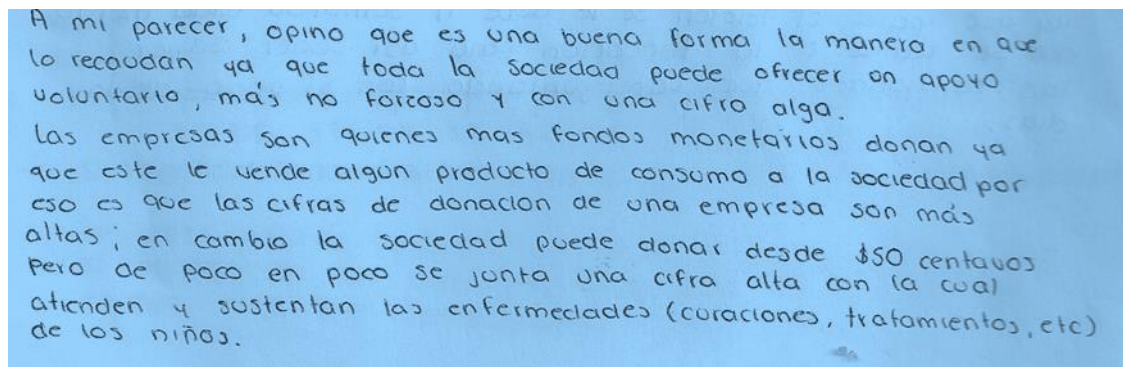 A mi parecer, opino que es una buena forma la manera en que
lo recaudan ya que toda la sociedad puede ofrecer un apoyo
voluntario, más no forzoso y con una cifra alga.
Las empresas son quienes mas fondos monetarios donan ya
que este le vende algun producto de consumo a la sociedad por
eso es que las cifras de donacion de una empresa son más
altas; en cambio la sociedad puede donar desde $50 centavos
pero de poco en poco se junta una cifra alta con la cual
atienden y sustentan las enfermedades (curaciones, tratamientos, etc)
de los niños.